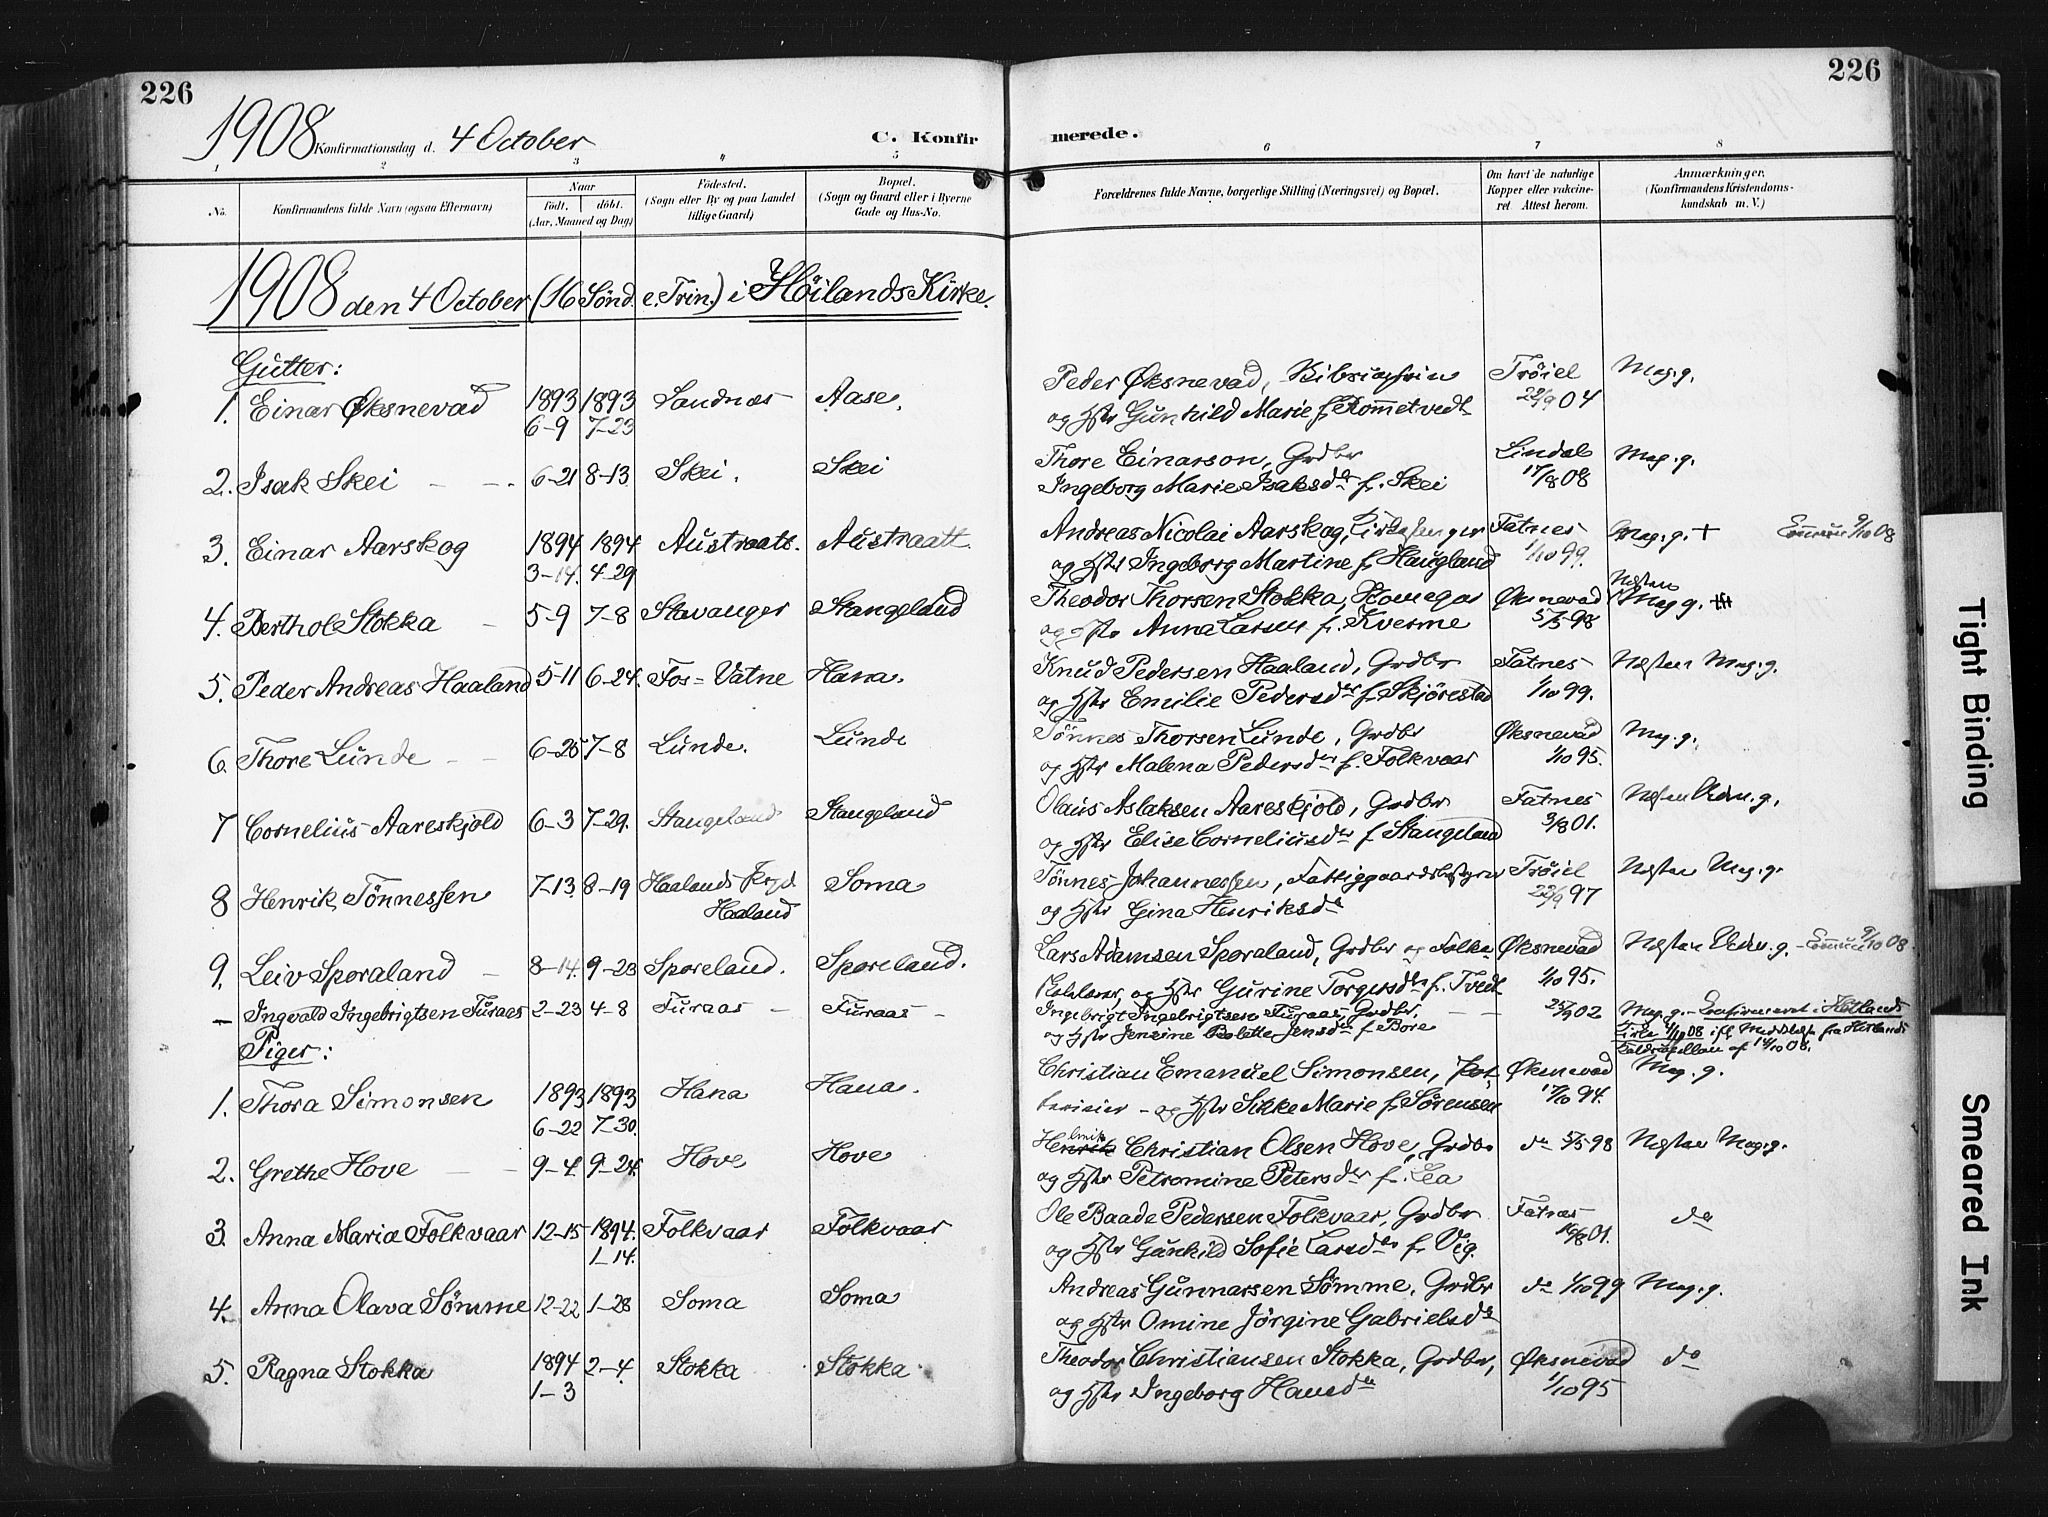 226
226
1908 Konfirmationsdag d. 4 October
C. Konfirmerede.
1 2 3 4 5 6 7 8
No. Konfirmandens fulde Navn (ogsaa Efternavn) Naar Født. døbt. (Aar, Maaned og Dag) Fødested. (Sogn eller By og paa Landet tillige Gaard) Bopæl. (Sogn og Gaard eller i Byerne Gade og Hus-No. Forældrenes fulde Navne, borgerlige Stilling (Næringsvei) og Bopæl. Om havt de naturlige Kopper eller vaccineret Attest herom. Anmærkninger. (Konfirmandens Kristendomskundskab m. V.)
1908 den 4 October (16 Sönd. e. Trin.) i Höilands Kirke.
Gutter:
1. Einar Øksnevad 1893 6-9 1893 7-23 Sandnæs Aase. Peder Øksnevad,
og Hstr Gunhild Marie f. Rommetvedt Tröiel 22/9 04 Mag. g.
2. Isak Skei - - 6-21 8-13 Skei. Skei Thore Einarson, Grdbr
Ingeborg Marie Isaksdtr f. Skei Lindal 17/8 08 Mag. g.
3. Einar Aarskog 1894 3-14. 1894 4-29 Austraatt. Austraatt Andreas Nicolai Aarskog, Kirkesanger
og Hstr Ingeborg Martine f. Haugland Fatnes 1/10 99. Mag. g. + 9/10 08
4. Berthol Stokka - 5-9 7-8 Stavanger Stangeland Theodor Thorsen Stokka,
og Hstr Anna Larsen f. Kverme Øksnevad 5/5 98 Næsten Mag g.
5. Peder Andreas Haaland 5-11 6-24. Fos-Vatne Hana. Knud Pedersen Haaland, Grdbr
og Hstr Emilie Pedersdtr f. Skjörestad Fatnes 1/10 99. Næsten Mag. g.
6. Thore Lunde - - 6-25 7-8 Lunde. Lunde Tönnes Thorsen Lunde, Grdbr
og Hstr Malena Pedersdtr f. Folkvaar Øksnevad 1/10 95. Mag. g.
7 Cornelius Aareskjold 6-3 7-29. Stangeland Stangeland Olaus Aslaksen Aareskjold, Grdbr
og Hstr Elise Corneliusdtr f. Stangeland Fatnes 3/8 01. Næsten Udm. g.
8 Henrik Tönnessen 7-13 8-19 Haalands Haaland Soma Tönnes Johannessen, Fattiggaardsbestyrer
og Hstr Gina Henriksdtr Tröiel 22/9 97 Næsten Mag. g.
9. Leiv Sporaland - 8-14. 9-23 Sporeland. Sporeland. Lars Adamsen Sporaland, Grdbr og Folke
og Hstr Gurine Torgersdtr f. Tvedt Øksnevad 1/10 95. Næsten Udm. g. - 9/10 08
- Ingvald Ingebrigtsen Furaas 2-23 4-8 Furaas - Furaas - Ingebrigt Ingebrigtsen Furaas, Grdbr,
og Hstr Jensine Bolette Jensdtr f. Bore - - 25/9 02 Mag. g. - Confirmeret i Hetlands
Kirke 4/10 08 ifl. Meddelelse fra Hetlands
af 14/10 08.
Piger:
1. Thora Simonsen 1893 6-22 1893 7-30. Hana Hana. Christian Emanuel Simonsen,
- og Hstr Sikke Marie f. Sörensen Øksnevad 17/10 94. Mag. g.
2. Grethe Hove - - 9-4 9-24. Hove Hove Henrik Christian Olsen Hove, Grdbr
og Hstr Petromine Petersdtr f. Lea do 5/5 98 Næsten Mag. g.
3. Anna Maria Folkvaar 12-15 1894. 1-14. Folkvaar Folkvaar Ole Baade Pedersen Folkvaar, Grdbr
og Hstr Gunhild Sofie Larsdtr f. Vig. Fatnes 10/8 01. do
4. Anna Olava Sömme 12-22 1-28 Soma Soma Andreas Gunnarsen Sömme, Grdbr
og Hstr Omine Jörgine Gabrielsdtr do 1/10 99 Mag. g.
5. Ragna Stokka 1894 1-3 2-4. Stokka Stokka Theodor Christiansen Stokka, Grdbr,
og Hstr Ingeborg Hansdtr Øksnevad 1/10 95 do
Tight Binding
Smeared Ink